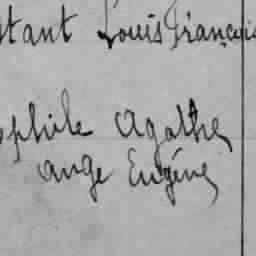 stant Louis François
ophile Agathe
ange Eugène